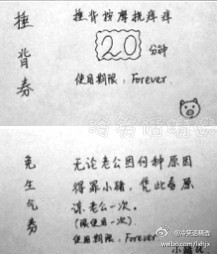 捶背券
捶背按摩挠痒痒
20分钟
使用期限:Forever.
免生气券
无论老公因何种原因
得罪小猪,凭此券原
谅老公一次。
(限使用一次)
使用期限:Forever
@冷笑话精选
weibo.com/lxhjx